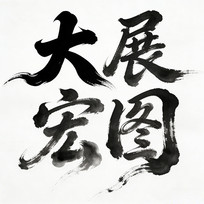 大展
宏图